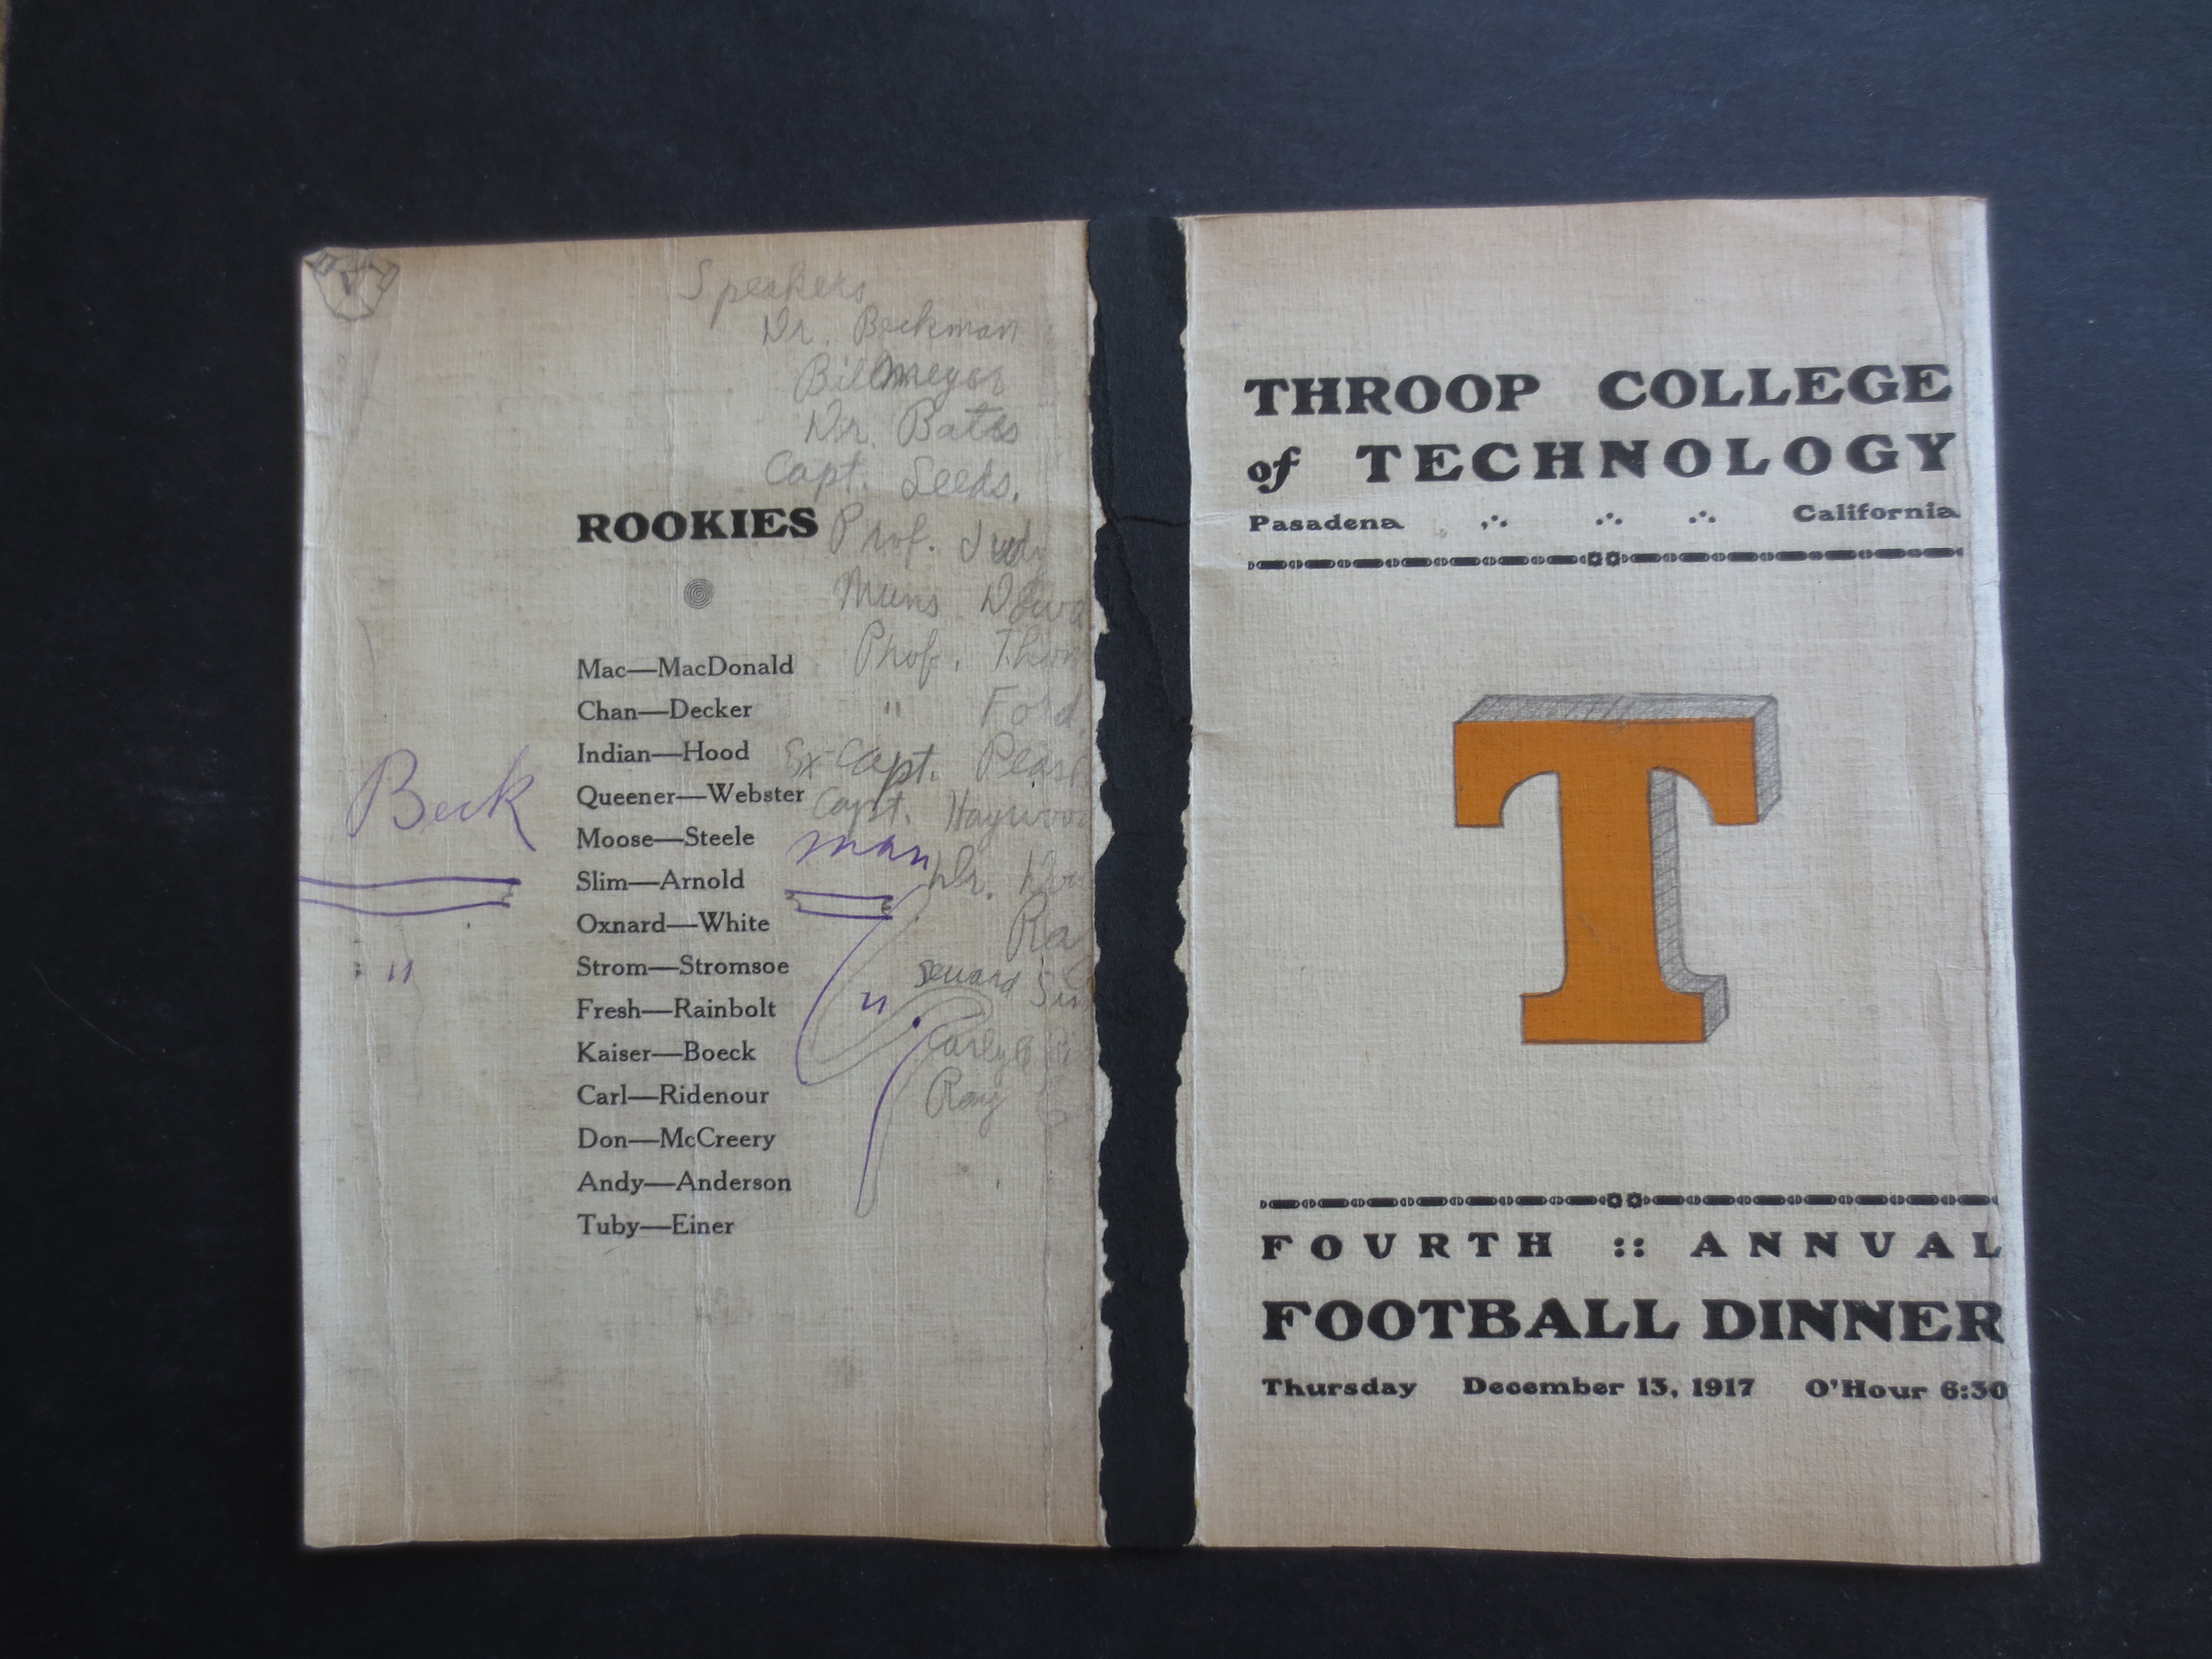 Speakers
Dr. Beckman
Bill Meyer
Dr. Bates
Capt. Leeds.
ROOKIES
Prof. Judy
Muns
Mac—MacDonald
Prof.
Chan—Decker
" Ford
Indian—Hood
Ex-Capt.
Queener—Webster
Capt.
Beck man
Moose—Steele
Slim—Arnold
Dr.
Oxnard—White
Strom—Stromsoe
Seward
" "
Fresh—Rainbolt
Kaiser—Boeck
Carlyle
Carl—Ridenour
Ray
Don—McCreery
Andy—Anderson
Tuby—Einer
THROOP COLLEGE
of TECHNOLOGY
Pasadena ∴ ∴ ∴ California
T
FOURTH :: ANNUAL
FOOTBALL DINNER
Thursday December 13, 1917 O'Hour 6:30